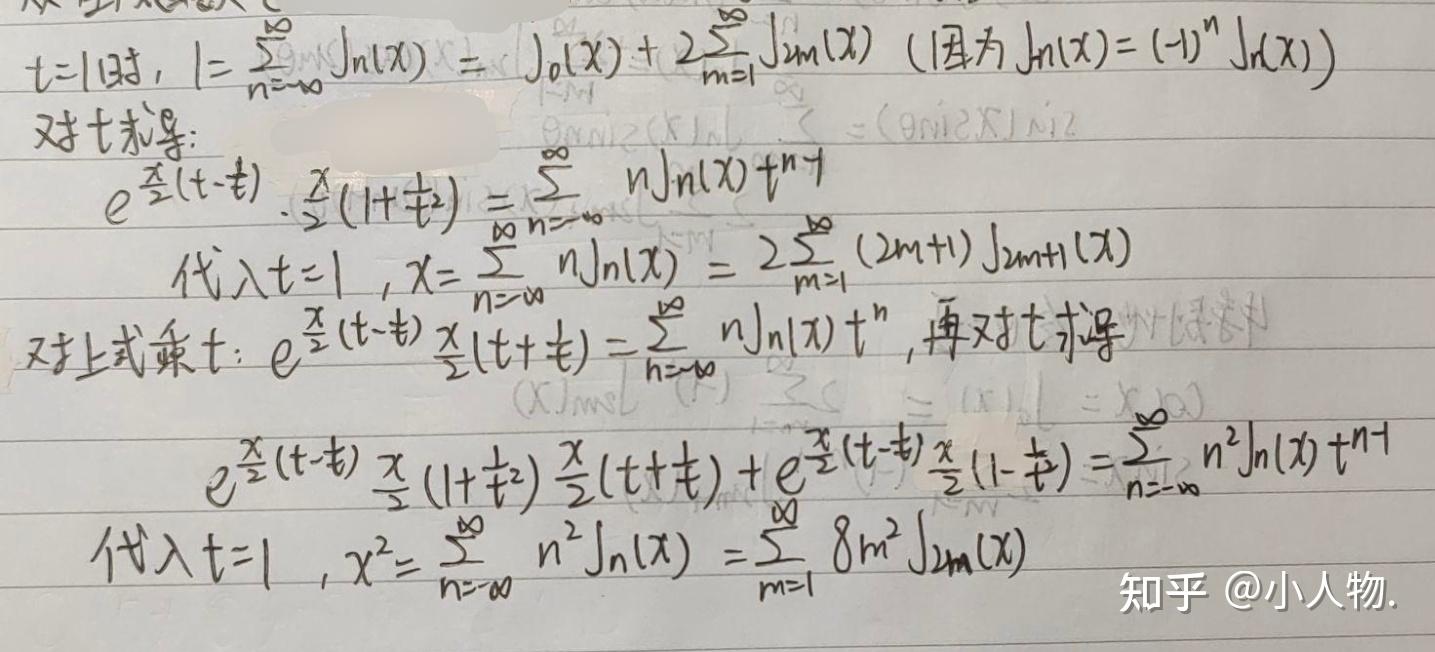 t=1时, 1=∑_{n=-∞}^{∞} Jn(x) = J₀(x) + 2∑_{m=1}^{∞} J_{2m}(x) (因为 Jn(x)=(-1)^n Jn(x))
对t求导:
e^{x/2(t-1/t)} · x/2(1+1/t²) = ∑_{n=-∞}^{∞} nJn(x)t^{n-1}
代入t=1, x=∑_{n=-∞}^{∞} nJn(x) = 2∑_{m=1}^{∞} (2m+1)J_{2m+1}(x)
对上式乘t: e^{x/2(t-1/t)} x/2(t+1/t) = ∑_{n=-∞}^{∞} nJn(x)t^n, 再对t求导
e^{x/2(t-1/t)} x/2(1+1/t²) x/2(t+1/t) + e^{x/2(t-1/t)} x/2(1-1/t²) = ∑_{n=-∞}^{∞} n²Jn(x)t^{n-1}
代入t=1, x²=∑_{n=-∞}^{∞} n²Jn(x) = ∑_{m=1}^{∞} 8m²J_{2m}(x)
知乎 @小人物.